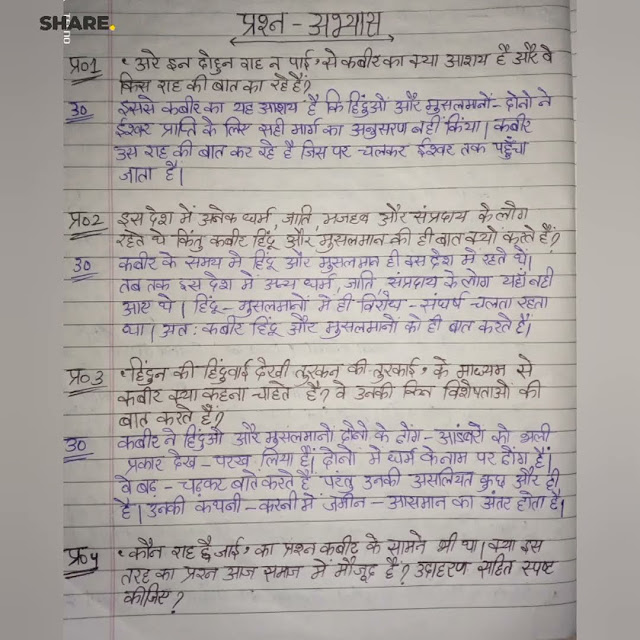 SHARE.
ou
प्रश्न - अभ्यास
प्र०1 'अरे इन दोहुन राह न पाई' से कबीर का क्या आशय है और वे
किस राह की बात का रहे हैं?
उ० इससे कबीर का यह आशय है कि हिंदुओं और मुसलमानों - दोनो ने
ईश्वर प्राप्ति के लिए सही मार्ग का अनुसरण नहीं किया। कबीर
उस राह की बात कर रहे हैं जिस पर चलकर ईश्वर तक पहुँचा
जाता है।
प्र०2 इस देश में अनेक धर्म, जाति, मजहब और संप्रदाय के लोग
रहते थे किंतु कबीर हिंदू और मुसलमान की ही बात क्यो करते हैं?
उ० कबीर के समय मे हिंदू और मुसलमान ही इस देश मे रहते थे।
तब तक इस देश में अन्य धर्म, जाति, संप्रदाय के लोग यहाँ नही
आए थे। हिंदू - मुसलमानों में ही विरोध - संघर्ष चलता रहता
था। अत: कबीर हिंदू और मुसलमानों को ही बात करते हैं।
प्र०3 'हिंदुन की हिंदुवाई देखी तुरकन की तुरकाई' के माध्यम से
कबीर क्या कहना चाहते हैं? वे उनकी किन विशेषताओं की
बात करते हैं?
उ० कबीर ने हिंदुओ और मुसलमानो दोनो के ढोंग - आडंबरो को भली
प्रकार देख - परख लिया है। दोनों मे धर्म के नाम पर ढोंग है।
वे बढ़ - चढ़कर बाते करते हैं परंतु उनकी असलियत कुछ और ही
है। उनकी कथनी - करनी में जमीन - आसमान का अंतर होता है।
प्र०4 'कौन राह ह्वै जाई' का प्रश्न कबीर के सामने भी था। क्या इस
तरह का प्रश्न आज समाज में मौजूद है? उदाहरण सहित स्पष्ट
कीजिए?